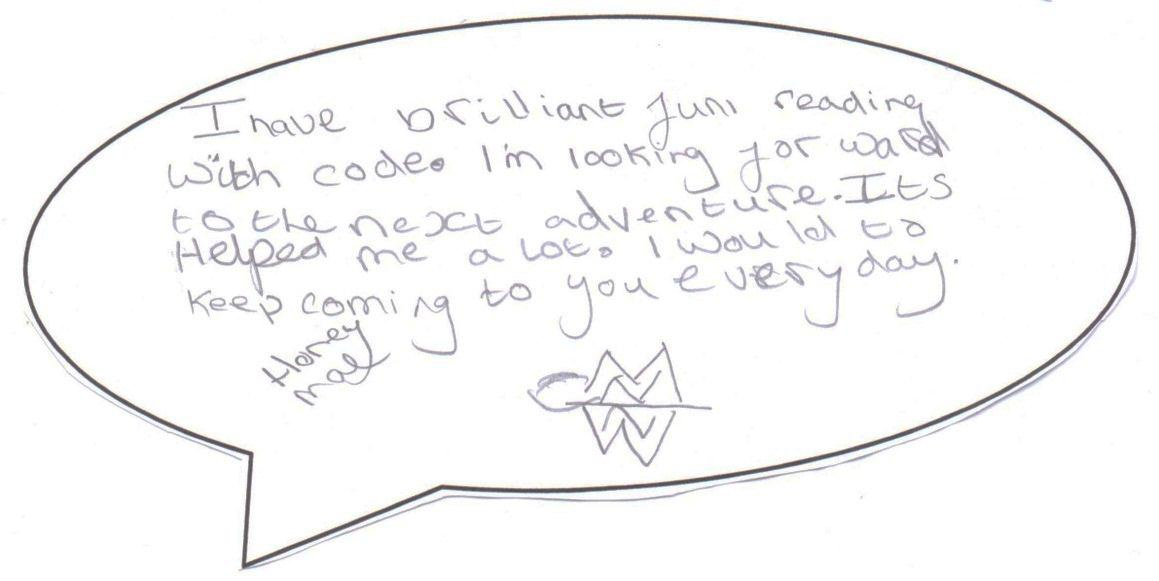 I have brilliant fun reading
with code. I'm looking for ward
to the next adventure. Its
Helped me a lot. I would to
keep coming to you every day.
Honey
mae